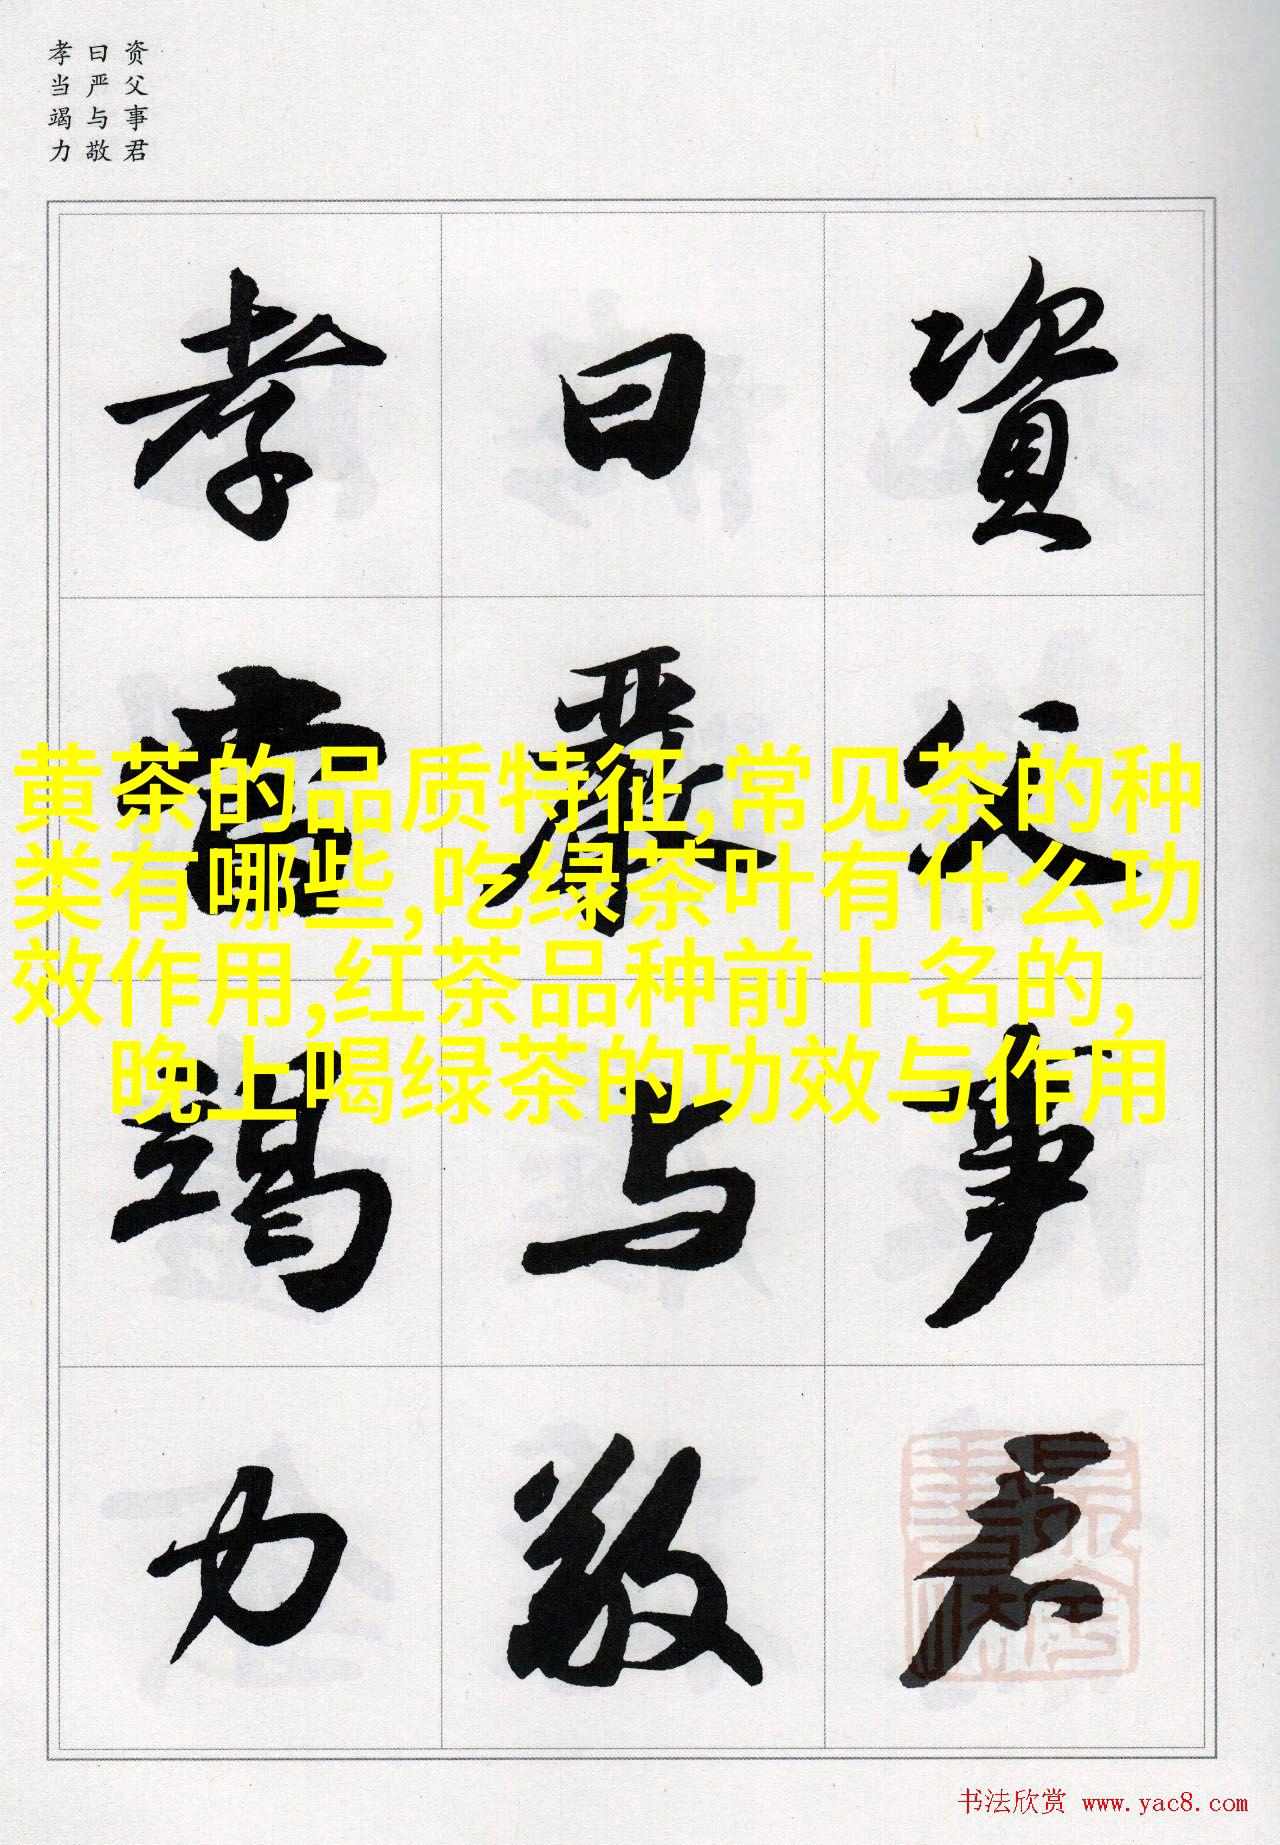 资父事君
曰严与敬
孝当竭力
資父事君
曰嚴与敬
孝當竭力
黄茶的品质特征,常见茶的种
类有哪些,吃绿茶叶有什么功
效作用,红茶品种前十名的,
晚上喝绿茶的功效与作用
书法欣赏 www.yac8.com